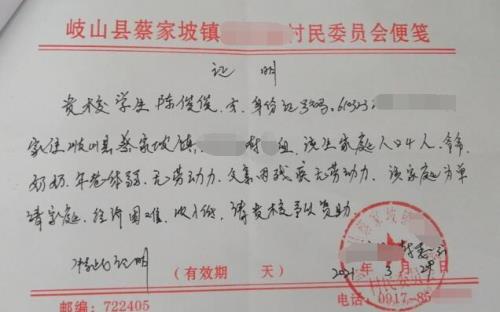 岐山县蔡家坡镇 村民委员会便笺
证 明
贵校学生陈俊俊,女,身份证号码:610323
家住岐山县蔡家坡镇 村 组,该生家庭人口4人,爷爷、
奶奶年老体弱,无劳动力,父亲因残疾无劳动力,该家庭为单
请家庭,经济困难,收入低,请贵校予以资助
特此证明
(有效期 天)
2021年3月29日
邮编:722405 电话:0917-85